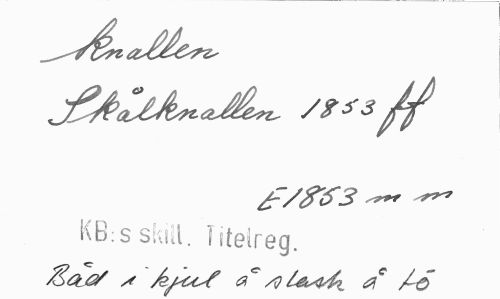 Knallen
Skålknallen 1853 ff
E1853 m m
KB:s skill. Titelreg.
Båd i kjul å slask å tö